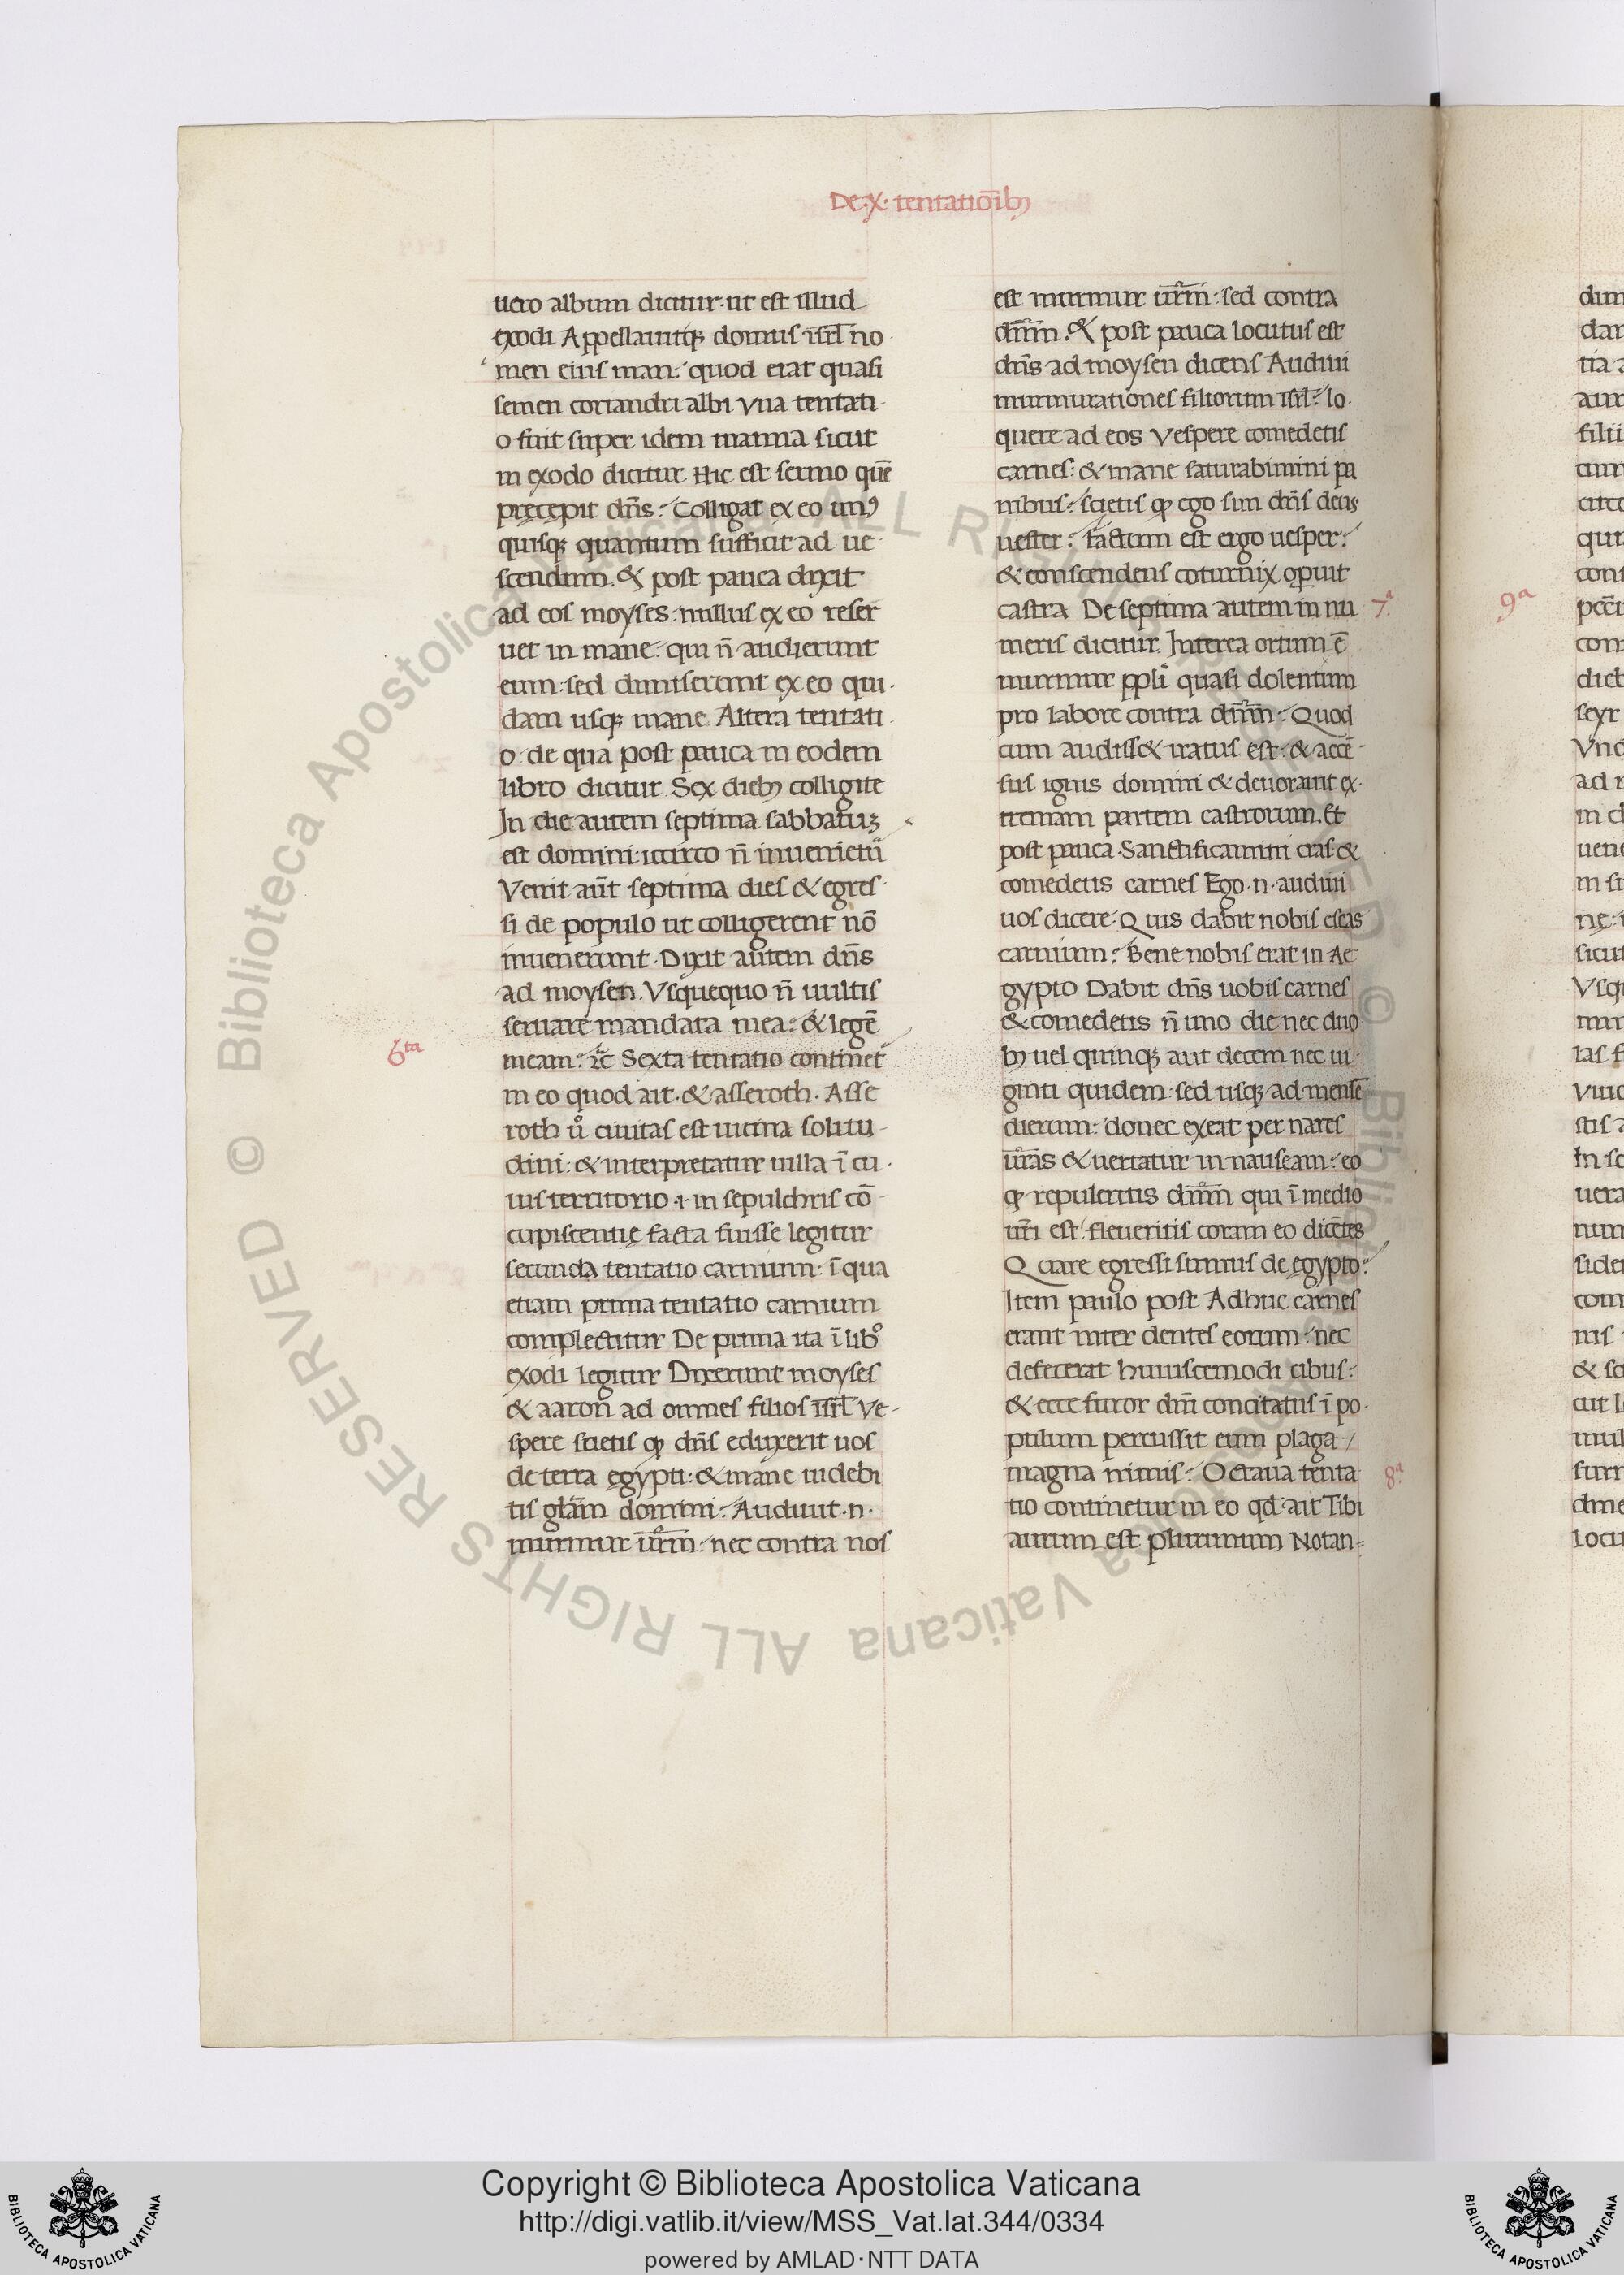 De·X· tentatiōibꝫ
uero album dicitur·ut est illud
exodi Appellauitqꝫ domus isrl̄ no
men eius man: quod erat quasi
semen coriandri albi Vna tentati
o fuit super idem manna sicut
in exodo dicitur Hic est sermo quē
pręcępit dn̄s: Colligat ex eo unꝰ
quisqꝫ quantum sufficit ad ue
scendum. & post pauca dixit
ad eos moyses: nullus ex eo reser
uet in mane: qui n̄ audierunt
eum: sed dimiserunt ex eo qui
dam usqꝫ mane. Altera tentati
o: de qua post pauca in eodem
libro dicitur Sex diebꝫ colligite
In die autem septima sabbatuꝫ
est domini: iccirco n̄ inuenietu᷑
Venit aūt septima dies & egres
si de populo ut colligerent nō
inuenerunt. Dixit autem dn̄s
ad moysen. Vsquequo n̄ uultis
seruare mandata mea: & legē
meam: ⁊c̄ Sexta tentatio continet᷑
6ta
in eo quod ait. & asseroth. Asse
roth u͛o ciuitas est uicina solitu
dini: & interpretatur uilla ī cu
ius territorio ·i· in sepulchris cō
cupiscentię facta fuisse legitur
secunda tentatio carnium: ī qua
etiam prima tentatio carnium
complectitur De prima ita ī libº
exodi legitur Dixerunt moyses
& aaron ad omnes filios isrl̄ Ve-
spere scietis ꝙ dn̄s eduxerit uos
de terra ęgypti: & mane uidebi
tis glām domini: Audiuit·n·
murmur ur̄m: nec contra nos
est murmur ur̄m: sed contra
dn̄m. & post pauca locutus est
dn̄s ad moysen dicens Audiui
murmurationes filiorum isrl̄: lo
quere ad eos Vespere comedetis
carnes: & mane saturabimini pa
nibus: scietis ꝙ ego sim dn̄s deus
uester: factum est ergo uesper:
& conscendens coturnix oꝑuit
castra De septima autem in nu
7.a
meris dicitur. Interea ortum ē
murmur ppl̄i quasi dolentium
pro labore contra dn̄m: Quod
cum audiss& iratus est: & accē-
sus ignis domini & deuorauit ex-
tremam partem castrorum. Et
post pauca. Sanctificamini cras &
comedetis carnes Ego·n·audiui
uos dicere. Quis dabit nobis escas
carnium: Bene nobis erat in Ae
gypto Dabit dn̄s uobis carnes
& comedetis n̄ uno die nec duo
bꝫ uel quinqꝫ aut decem nec ui
ginti quidem: sed usqꝫ ad mensē
dierum: donec exeat per nares
ur̄as & uertatur in nauseam: eo
ꝙ repuleritis dn̄m qui ī medio
ur̄i est: fleueritis coram eo dicētes
Quare egressi sumus de ęgypto:
Item paulo post Adhuc carnes
erant inter dentes eorum: nec
defecerat huiuscemodi cibus:
& ecce furor dn̄i concitatus ī po-
pulum percussit eum plaga
magna nimis: Octaua tenta
8.a
tio continetur in eo qd̄ ait Tibi
aurum est plurimum Notan=
9a
Copyright © Biblioteca Apostolica Vaticana
http://digi.vatlib.it/view/MSS_Vat.lat.344/0334
powered by AMLAD·NTT DATA
BIBLIOTECA APOSTOLICA VATICANA
BIBLIOTECA APOSTOLICA VATICANA
© Biblioteca Apostolica Vaticana ALL RIGHTS RESERVED © Biblioteca Apostolica Vaticana ALL RIGHTS RESERVED